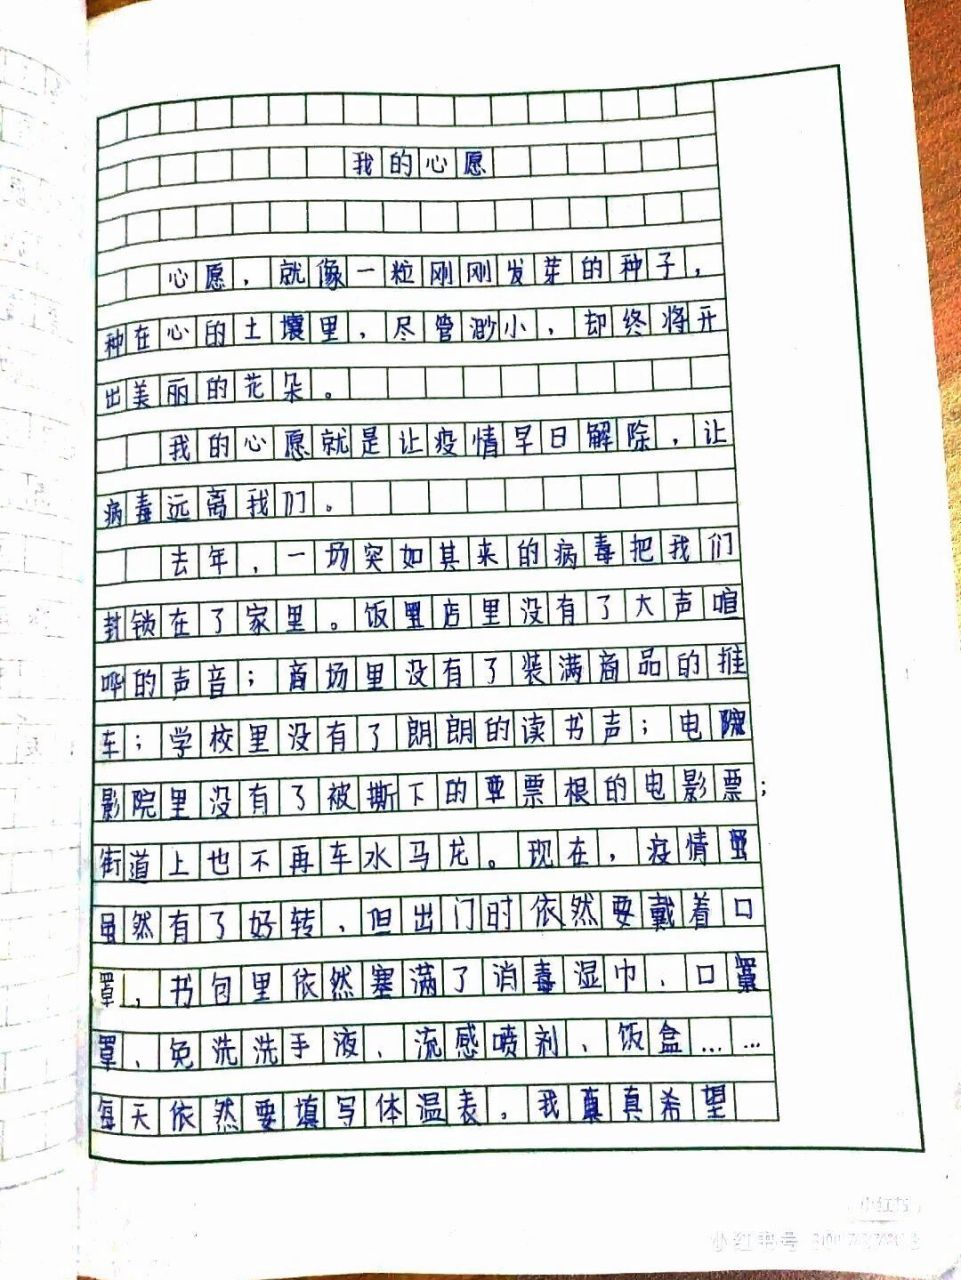 我的心愿
心愿，就像一粒刚刚发芽的种子，
种在心的土壤里，尽管渺小，却终将开
出美丽的花朵。
我的心愿就是让疫情早日解除，让
病毒远离我们。
去年，一场突如其来的病毒把我们
封锁在了家里。饭店里没有了大声喧
哗的声音；商场里没有了装满商品的推
车；学校里没有了朗朗的读书声；电
影院里没有了被撕下的票根的电影票；
街道上也不再车水马龙。现在，疫情
虽然有了好转，但出门时依然要戴着口
罩，书包里依然塞满了消毒湿巾、口
罩、免洗洗手液、流感喷剂、饭盒……
每天依然要填写体温表。我真希望
小红书
小红书号